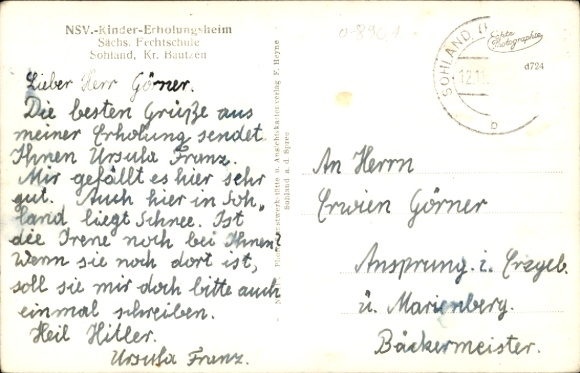 NSV.-Kinder-Erholungsheim
Sächs. Fechtschule
Sohland, Kr. Bautzen
Lieber Herr Görner.
Die besten Grüße aus
meiner Erholung sendet
Ihnen Ursula Franz.
Mir gefällt es hier sehr
gut. Auch hier in Soh„
land liegt Schnee. Ist
die Irene noch bei Ihnen?
Wenn sie noch dort ist,
soll sie mir doch bitte auch
einmal schreiben.
Heil Hitler.
Ursula Franz.
u. Ansichtskartenverlag F. Heyne
Sohland a. d. Spree
SOHLAND
12.11
b
Echte
Photographie
d724
An Herrn
Erwien Görner
Ansprung. i. Erzgeb.
ü. Marienberg.
Bäckermeister.